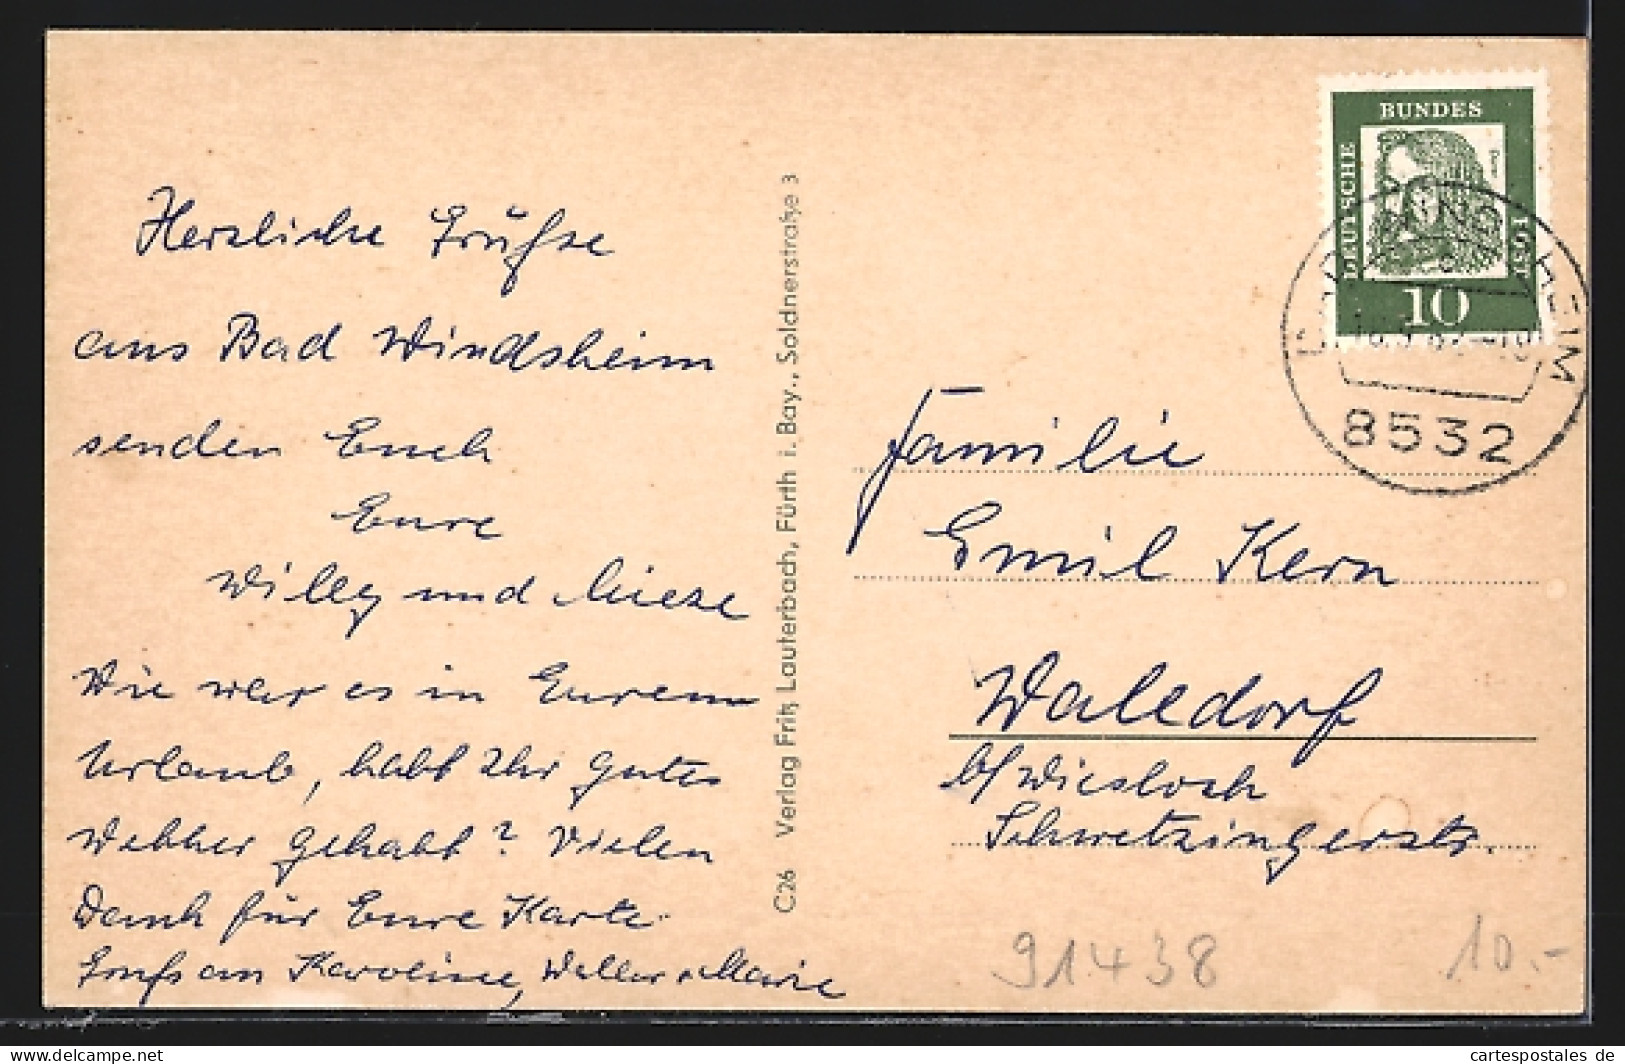 Herzliche Grüße
aus Bad Windsheim
senden Euch
Eure
Willy und Lieze
Wie war es in Eurem
Urlaub, habt Ihr gutes
Wetter gehabt? Vielen
Dank für Eure Karte.
Gruß an Karoline, Walter u. Marie
C26 Verlag Fritz Lauterbach, Fürth i. Bay., Soldnerstraße 3
DEUTSCHE
BUNDES
POST
10
WINDSHEIM
8532
Familie
Emil Kern
Walldorf
b/Wiesloch
Schwetzingerstr.
91438
10.-
Hosted on www.delcampe.net
cartespostales de